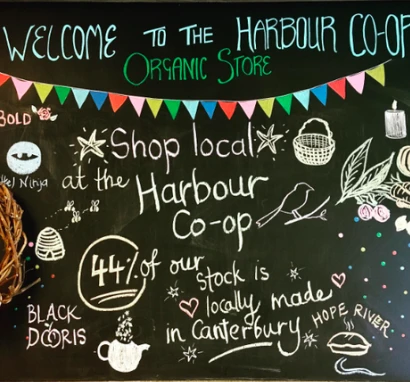 WELCOME TO THE HARBOUR CO-OP
ORGANIC STORE
BOLD
Shop local
at the Harbour
Co-op
44% of our
stock is
locally made
in Canterbury
BLACK
DORIS
HOPE RIVER